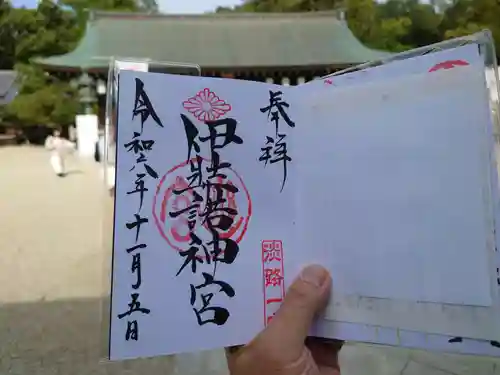 奉拝
伊弉諾神宮
令和六年十一月五日
淡路一